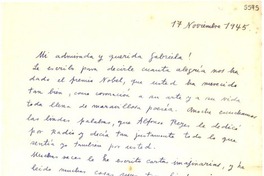 5595
17 Noviembre 1945
Mi admirada y querida Gabriela!
Le escribo para decirle cuanta alegría nos ha
dado el Premio Nobel, que usted ha merecido
tan bien, como coronación a su arte y a su vida
toda llena de maravillosa poesía. Mucho
las lindas palabras, que Alfonso Reyes le dedicó
por Radio y decía tan justamente todo lo que
sentía yo tambien por usted.
Muchas veces le he escrito cartas imaginarias, y he
leido muchas cosas